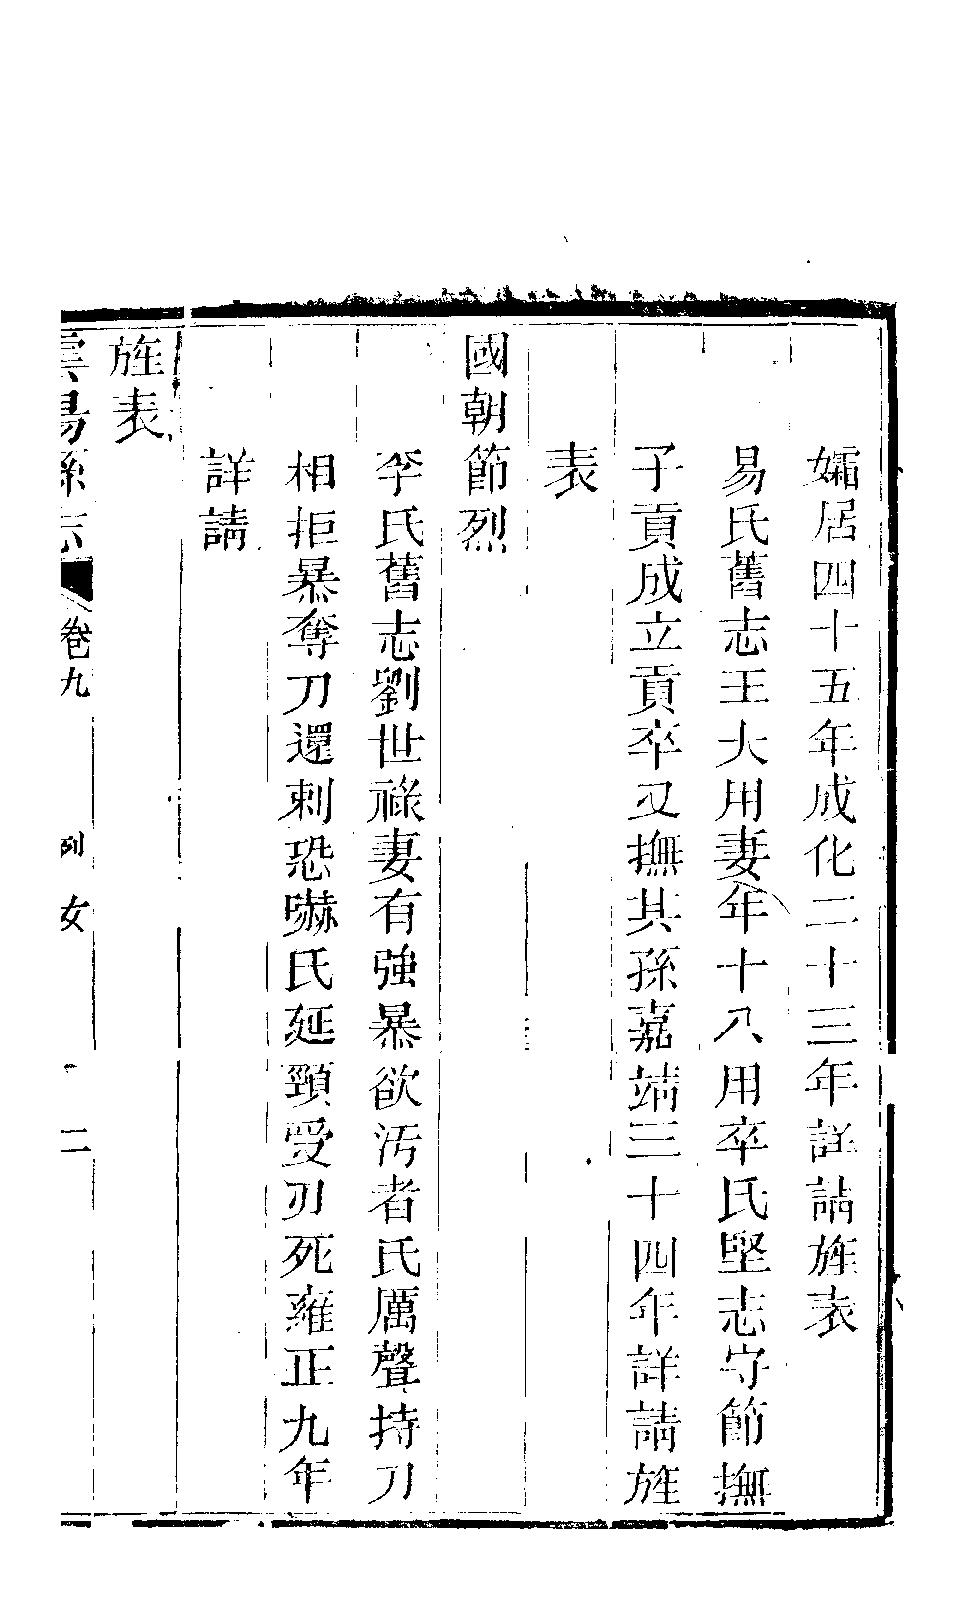 孀居四十五年成化二十三年詳請旌表
易氏舊志王大用妻年十八用卒氏堅志守節撫
子貢成立貢卒又撫其孫嘉靖三十四年詳請旌
表
國朝節烈
李氏舊志劉世祿妻有強暴欲汚者氏厲聲持刀
相拒暴奪刀還刺恐嚇氏延頸受刃死雍正九年
詳請
旌表
雲陽縣志
卷九
列女
二